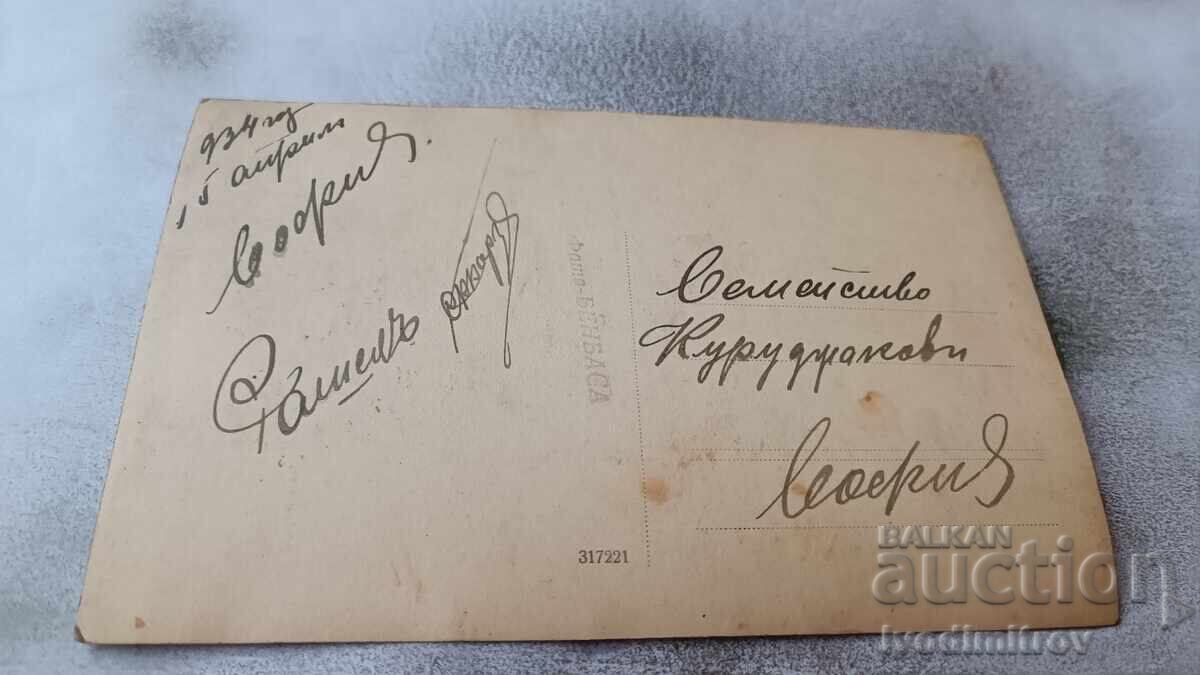 934 год
15 април
София.
Спомен
Фото-БЕНБАСА
Семейство
Куруджакови
София
317221
BALKAN
auction
Ivodimitrov